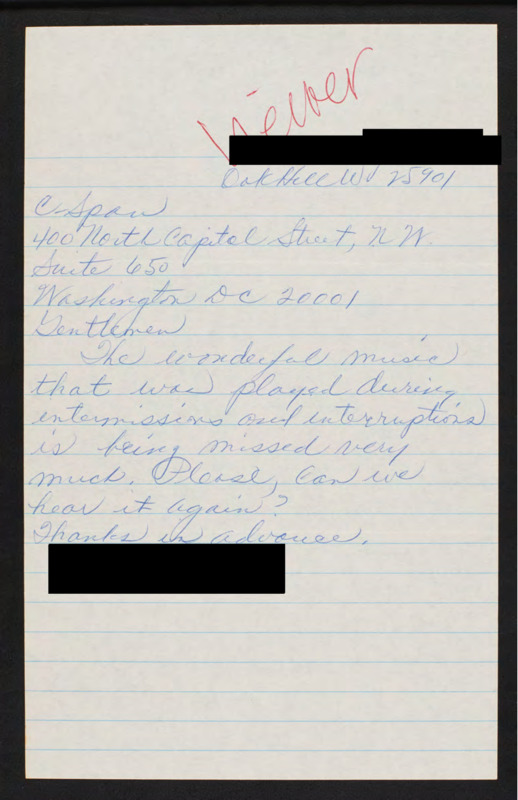 Viewer
Oak Hill WV 25901
C-Span
400 North Capitol Street, N.W.
Suite 650
Washington DC 20001
Gentlemen
The wonderful music
that was played during
intermissions and interruptions
is being missed very
much. Please, can we
hear it again?
Thanks in advance.